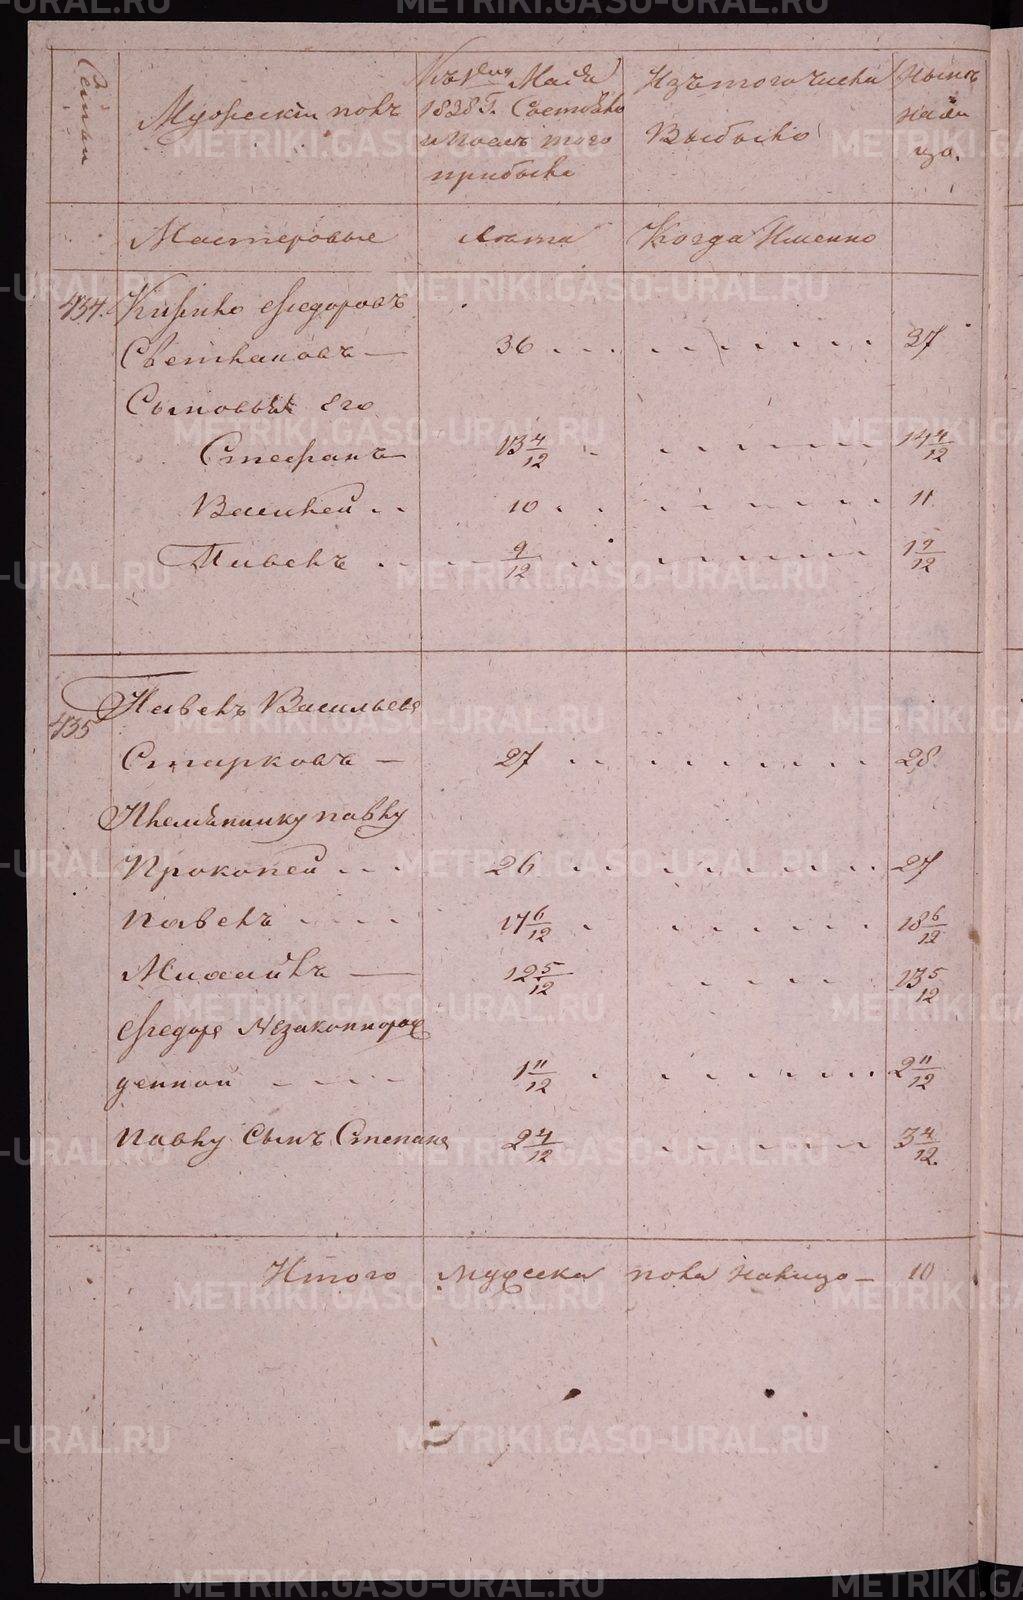 Семьи
Мужеский полъ
Къ 1ому Маія
1828 г. Состояло
и После того
прибыло
Изъ того числа
Выбыло
Ныне
на ли
цо.
Мастеровые
Лета
Когда Именно
434. Кирило Федоровъ
Светлаковъ — 36 37
Сыновья Его
Стефанъ 13 4/12 14 4/12
Василей 10 11
Павелъ 9/12 1 9/12
435 Павелъ Васильевъ
Старковъ — 27 28
Племянники павлу
Прокопей 26 27
Павелъ 17 6/12 18 6/12
Михайлъ — 12 5/12 13 5/12
Федоръ Незаконнорож
денной 1 11/12 2 11/12
Павлу Сынъ Степанъ 2 4/12 3 4/12
Итого мужеска пола налицо — 10
METRIKI.GASO-URAL.RU